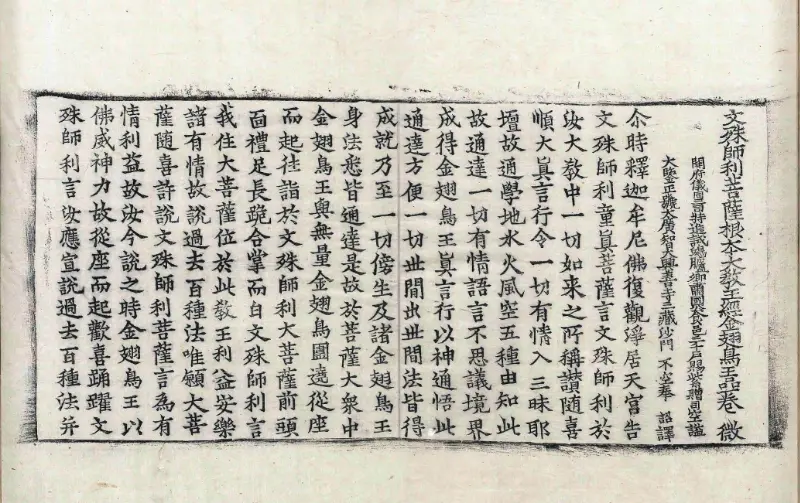 文殊師利菩薩根本大教王經金翅鳥王品卷 微
開府儀同三司特進試鴻臚卿肅國公食邑三千戶賜紫贈司空謚
大鑒正號大廣智大興善寺三藏沙門 不空奉 詔譯
尒時釋迦牟尼佛復觀淨居天宮告
文殊師利童真菩薩言文殊師利於
汝大教中一切如來之所稱讚隨喜
順大真言行令一切有情入三昧耶
壇故通學地水火風空五種由知此
故通達一切有情語言不思議境界
成得金翅鳥王真言行以神通悟此
通達方便一切世間出世間法皆得
成就乃至一切傍生及諸金翅鳥王
身法悉皆通達是故於菩薩大衆中
金翅鳥王與無量金翅鳥圍遶從座
而起往詣於文殊師利大菩薩前頭
面禮足長跪合掌而白文殊師利言
我住大菩薩位於此教王利益安樂
諸有情故說過去百種法唯願大菩
薩隨喜許說文殊師利菩薩言為有
情利益故汝今說之時金翅鳥王以
佛威神力故從座而起歡喜踊躍文
殊師利言汝應宣說過去百種法并